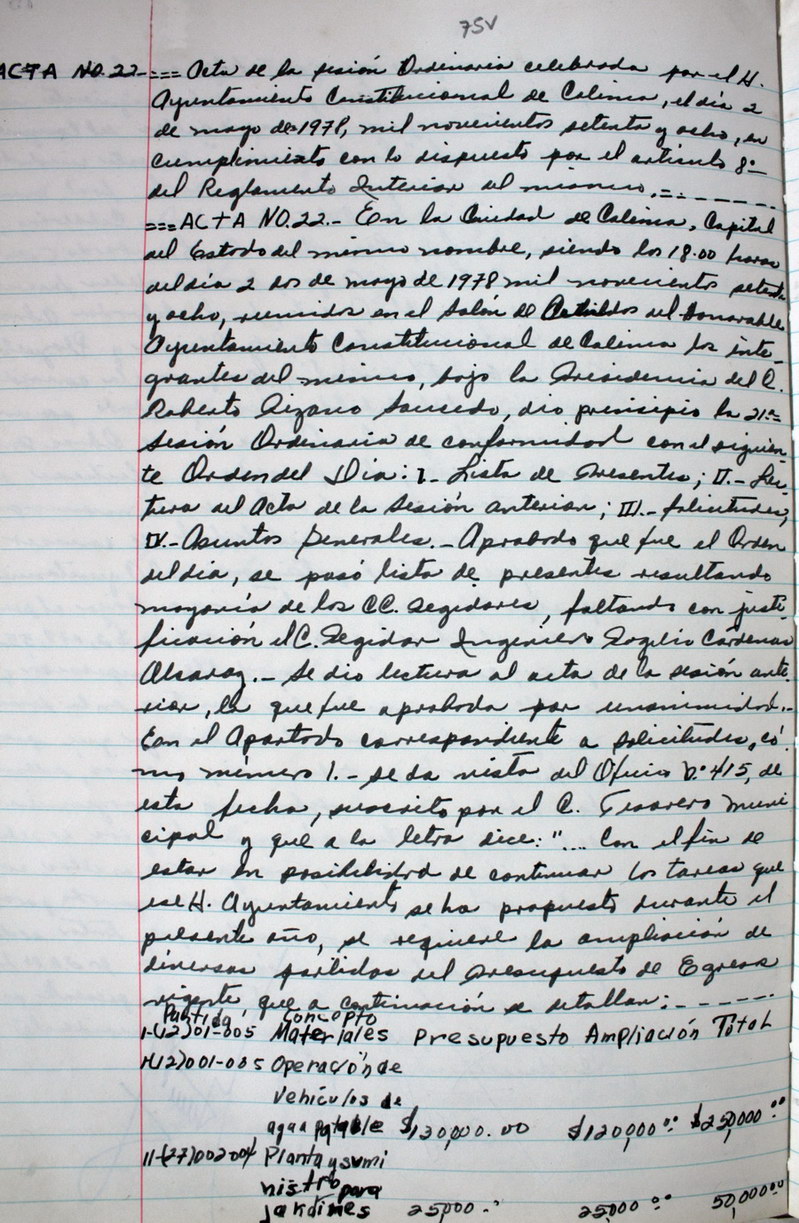 75V
ACTA NO.22.-=== Acta de la sesión Ordinaria celebrada por el H.
Ayuntamiento Constitucional de Colima, el día 2
de mayo de 1978, mil novecientos setenta y ocho, en
cumplimiento con lo dispuesto por el artículo 8o-
del Reglamento Interior del mismo.=-------
===ACTA NO.22.- En la Ciudad de Colima, Capital
del Estado del mismo nombre, siendo las 18.00 horas
del día 2 dos de mayo de 1978 mil novecientos setenta
y ocho, reunidos en el Salón de Cabildos del Honorable
Ayuntamiento Constitucional de Colima los inte-
grantes del mismo, bajo la Presidencia del C.
Roberto Pizano Saucedo, dio principio la 21a=
Sesión Ordinaria de conformidad con el siguien-
te Orden del Día: I- Lista de Presentes; II.- Lec-
tura del Acta de la Sesión anterior; III.- Solicitudes,
IV.- Asuntos Generales.- Aprobado que fue el Orden
del día, se pasó lista de presentes resultando
mayoría de los CC. Regidores, faltando con justi-
ficación el C. Regidor Ingeniero Rogelio Cárdenas
Alcaraz.- Se dio lectura al acta de la sesión ante-
rior, la que fue aprobada por unanimidad.-
En el Apartado correspondiente a solicitudes, có-
mo número 1.- se da vista del Oficio No. 415, de
esta fecha, suscrito por el C. Tesorero Muni
cipal y que a la letra dice: "... Con el fin de
estar en posibilidad de continuar las tareas que
ese H. Ayuntamiento se ha propuesto durante el
presente año, se requiere la ampliación de
diversas partidas del Presupuesto de Egresos
vigente, que a continuación se detallan:------
Partida, Concepto
1-(12)01-005 Materiales Presupuesto Ampliación Total
(12)001-005 Operación de
Vehículos de
agua potable $130,000.00 $120,000.00 $250,000.00
11-(27)002004 Planta y sumi
nistro para
jardines 25,000.- 25,000.00 50,000.00